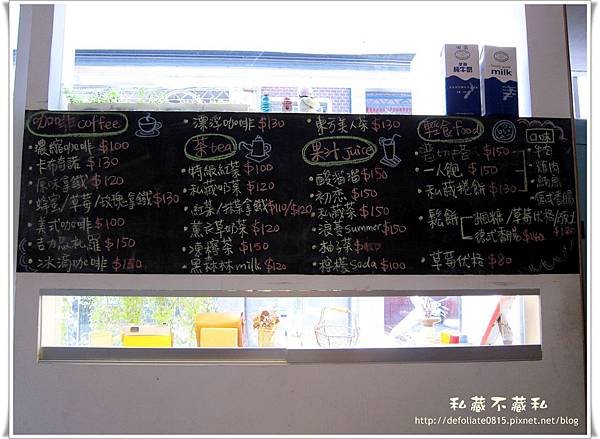 咖啡 coffee
濃縮咖啡 $100
卡布奇諾 $130
原味拿鐵 $130
蜂蜜/草莓/玫瑰拿鐵 $130
美式咖啡 $100
$150
冰滴咖啡 $150
漂浮咖啡 $130
茶 tea
特級紅茶 $100
私藏奶茶 $120
紅茶/抹茶拿鐵 $110/$120
薰衣草奶茶 $120
凍檸茶 $150
黑森林 milk $120
東方美人茶 $130
果汁 juice
酸溜溜 $150
初戀 $150
私藏茶 $150
浪漫 Summer $150
柚子茶
檸檬 Soda $100
輕食 food
$150
一人飽 $150
私藏捲餅 $130
鬆餅
楓糖/草莓
$140
$120
草莓 $80
口味
牛肉
豬肉
鮪魚
milk
私藏不藏私
http://defoliate0815.pixnet.net/blog